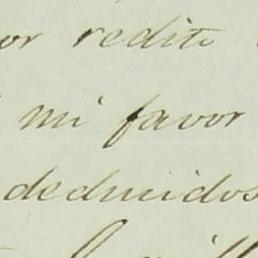 or redito
mi favor
deducidos